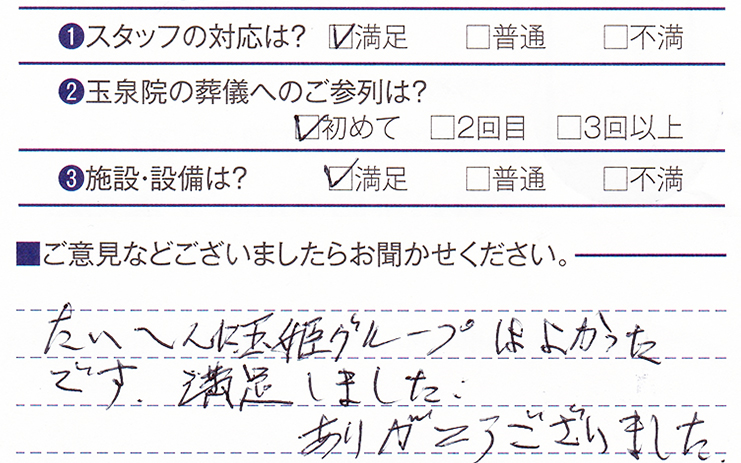 ❶スタッフの対応は? ☑満足 □普通 □不満
❷玉泉院の葬儀へのご参列は?
☑初めて □2回目 □3回以上
❸施設・設備は? ☑満足 □普通 □不満
■ご意見などございましたらお聞かせください。
たいへんに玉姫グループはよかった
です。満足しました。
ありがとうございました。